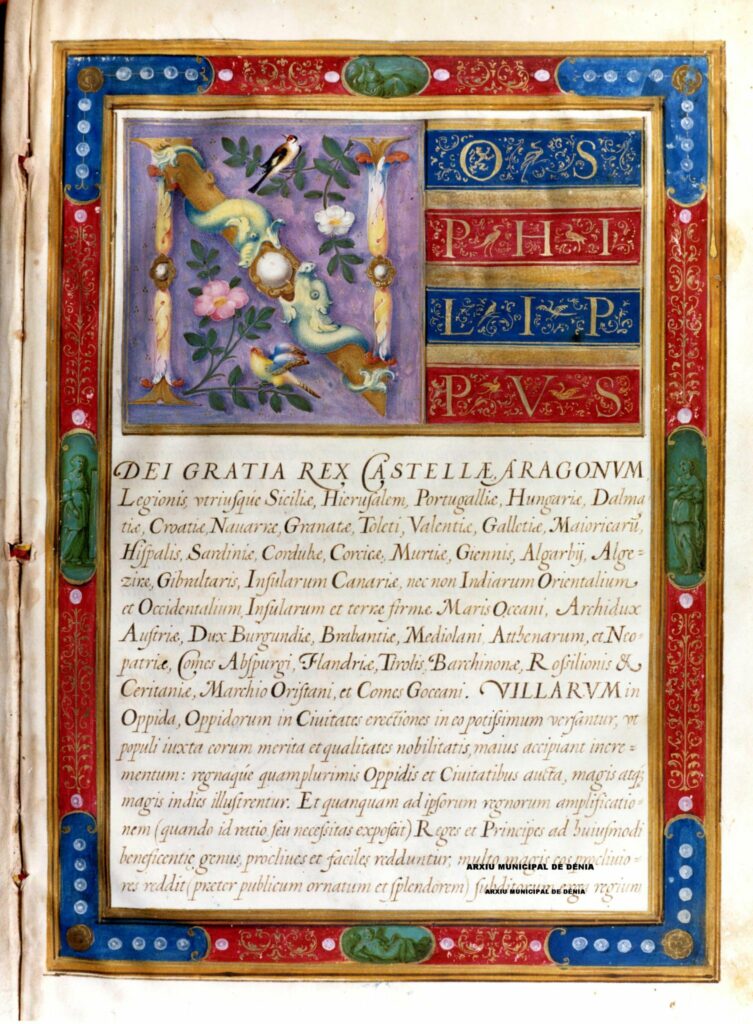 NOS
PHI
LIP
PVS
DEI GRATIA REX CASTELLÆ, ARAGONVM
Legionis, vtriusque Siciliæ, Hierusalem, Portugalliæ, Hungariæ, Dalma
tiæ, Croatiæ, Nauarræ, Granatæ, Toleti, Valentiæ, Galletiæ, Maioricarū,
Hispalis, Sardiniæ, Cordubæ, Corcicæ, Murtiæ, Giennis, Algarbij, Alge=
ziræ, Gibraltaris, Insularum Canariæ, nec non Indiarum Orientalium
et Occidentalium, Insularum et terræ firmæ Maris Oceani, Archidux
Austriæ, Dux Burgundiæ, Brabantiæ, Mediolani, Atthenarum, et Neo=
patriæ, Comes Abspurgi, Flandriæ, Tirolis, Barchinonæ, Rossilionis &
Ceritaniæ, Marchio Oristani, et Comes Goceani. VILLARVM in
Oppida, Oppidorum in Ciuitates erectiones in eo potissimum versantur, vt
populi iuxta eorum merita et qualitates nobilitatis, maius accipiant incre=
mentum: regnaque quamplurimis Oppidis et Ciuitatibus aucta, magis atq;
magis indies illustrentur. Et quanquam ad ipsorum regnorum amplificatio=
nem (quando id ratio seu necessitas exposcit) Reges et Principes ad huiusmodi
beneficentię genus, procliues et faciles redduntur, multo magis eos procliuio=
ARXIU MUNICIPAL DE DÉNIA
res reddit (præter publicum ornatum et splendorem) subditorum erga regium
ARXIU MUNICIPAL DE DÉNIA